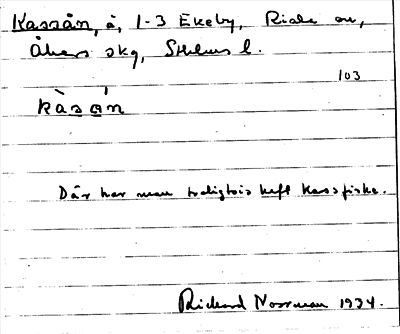 Kassån, å, 1-3 Ekeby, Riala sn,
Åkers skg, Sthlms l.
103
kàsǻn
Där har man troligtvis haft kassfiske.
Rickard Norrman 1934.